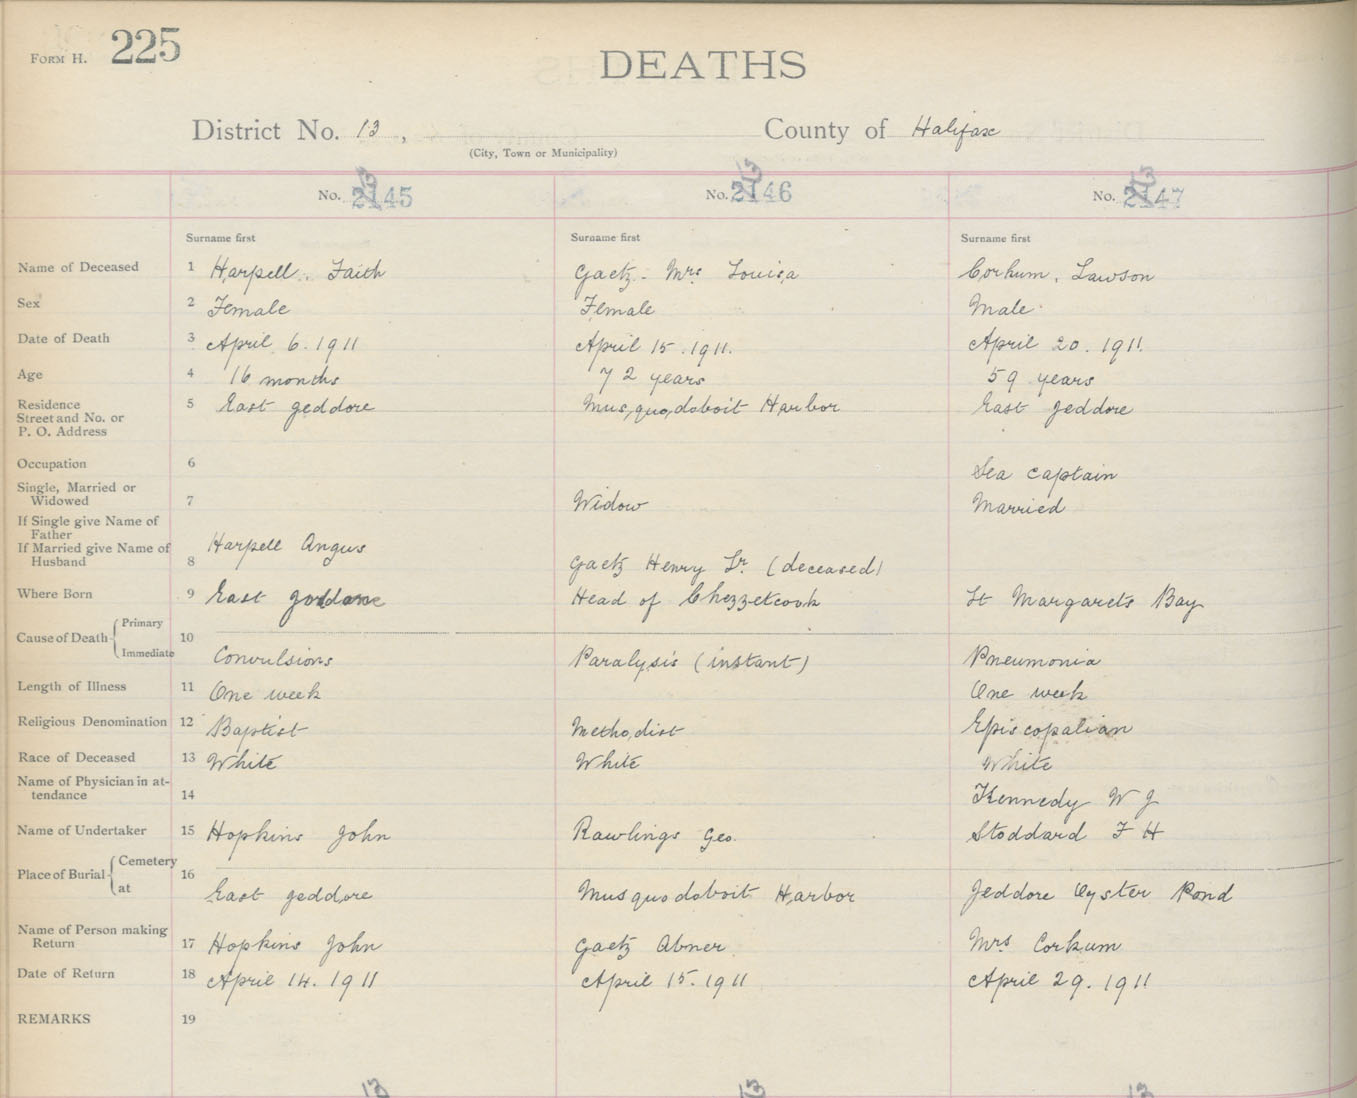 FORM H. 225
DEATHS
District No. 13, County of Halifax
(City, Town or Municipality)
13 13 13
No. 2145 No. 2146 No. 2147
Surname first Surname first Surname first
Name of Deceased 1 Harpell. Faith Gaetz. Mrs Louisa Corkum. Lawson
Sex 2 Female Female Male
Date of Death 3 April 6. 1911 April 15. 1911. April 20. 1911.
Age 4 16 months 72 years 59 years
Residence 5 East Jeddore Musquodoboit Harbor East Jeddore
Street and No. or
P. O. Address
Occupation 6 Sea Captain
Single, Married or
Widowed 7 Widow Married
If Single give Name of
Father
If Married give Name of Harpell Angus
Husband 8 Gaetz Henry Sr. (deceased)
Where Born 9 East Jeddore Head of Chezzetcook St Margarets Bay
Cause of Death { Primary 10
Immediate Convulsions Paralysis (instant) Pneumonia
Length of Illness 11 One week One week
Religious Denomination 12 Baptist Methodist Episcopalian
Race of Deceased 13 White White White
Name of Physician in at-
tendance 14 Kennedy W J
Name of Undertaker 15 Hopkins John Rawlings Geo. Stoddard F H
Place of Burial { Cemetery 16
at East Jeddore Musquodoboit Harbor Jeddore Oyster Pond
Name of Person making
Return 17 Hopkins John Gaetz Abner Mrs Corkum
Date of Return 18 April 14. 1911 April 15. 1911 April 29. 1911
REMARKS 19
13 13 13